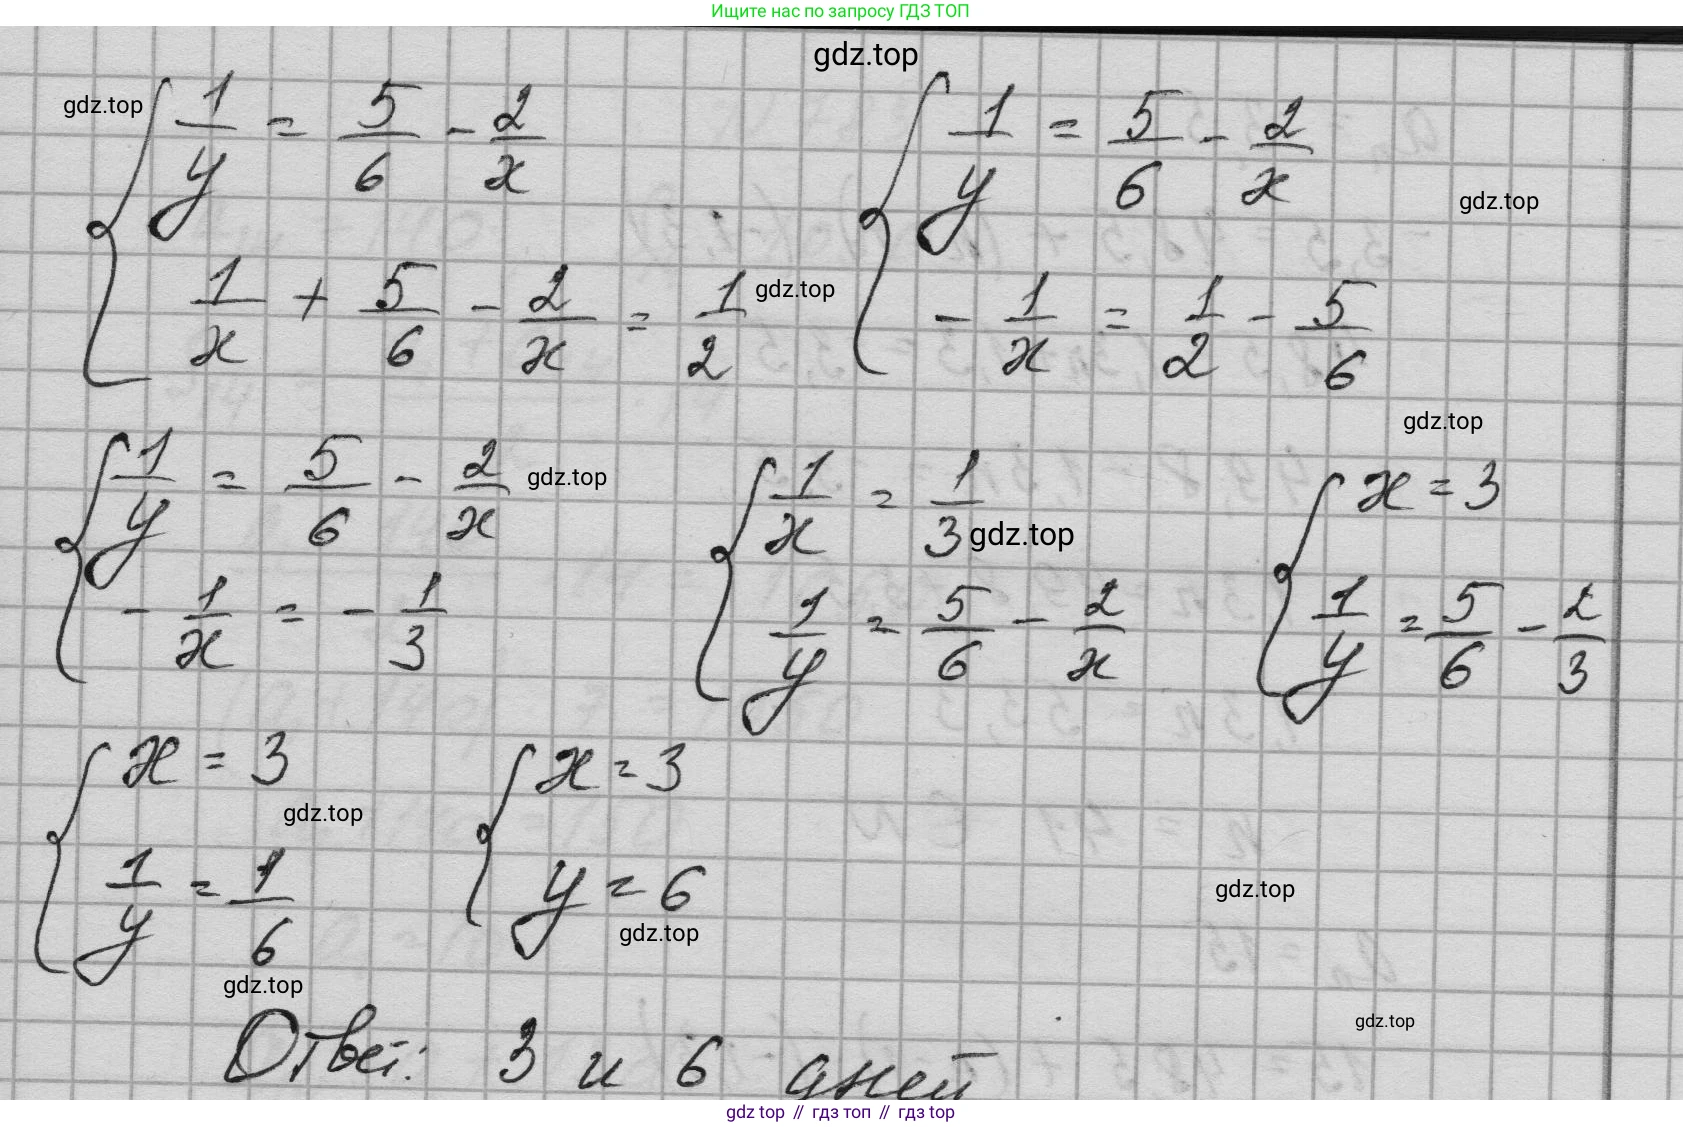 Ищите нас по запросу ГДЗ ТОП
gdz.top
gdz.top
1/y = 5/6 - 2/x
1/x + 5/6 - 2/x = 1/2
gdz.top
1/y = 5/6 - 2/x
- 1/x = 1/2 - 5/6
gdz.top
gdz.top
1/y = 5/6 - 2/x
- 1/x = - 1/3
gdz.top
1/x = 1/3
1/y = 5/6 - 2/x
gdz.top
x = 3
1/y = 5/6 - 2/3
x = 3
1/y = 1/6
gdz.top
x = 3
y = 6
gdz.top
gdz.top
gdz.top
gdz.top
Ответ: 3 и 6 дней
gdz top // гдз топ // gdz top